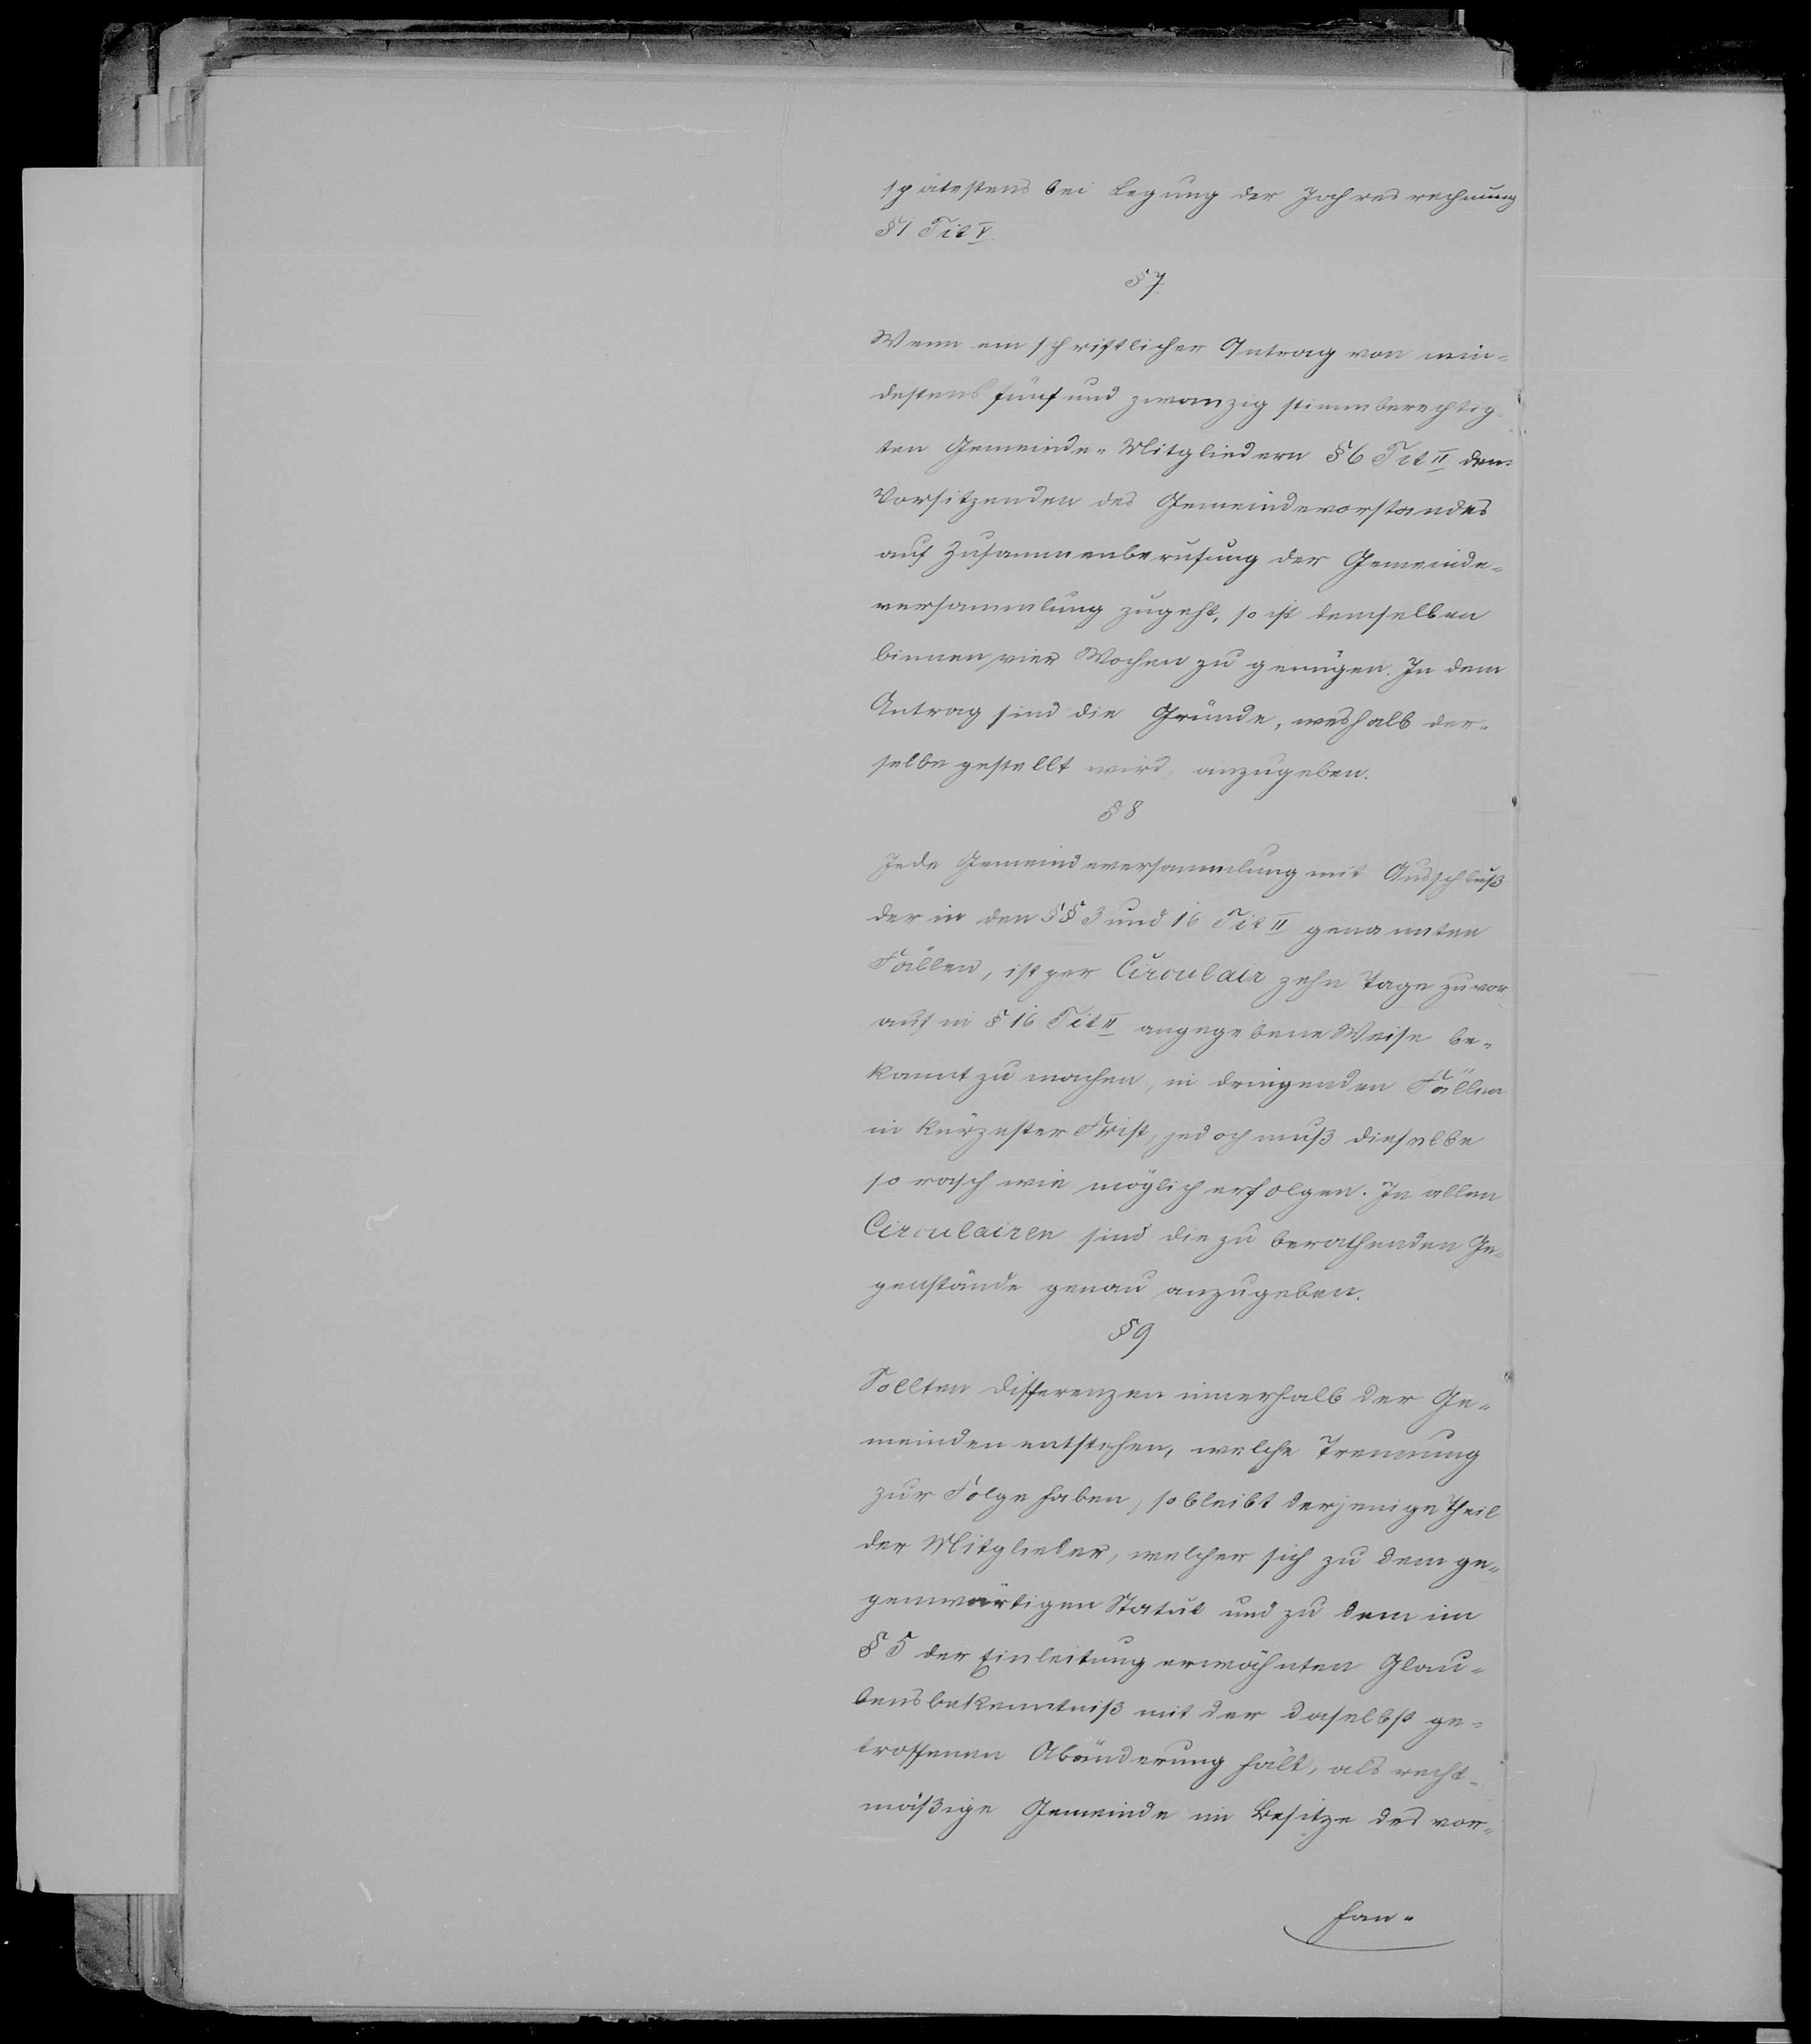 spätestens bei Legung der Jahresrechnung
§1 Tit V.
§7.
Wenn ein schriftlicher Antrag von min-
destens fünf und zwanzig stimmberechtig-
ten Gemeinde-Mitgliedern §6 Tit II dem
Vorsitzenden des Gemeindevorstandes
auf Zusammenberufung der Gemeinde-
versammlung zugeht, so ist demselben
binnen vier Wochen zu genügen. In dem
Antrag sind die Gründe, weshalb der-
selbe gestellt wird, anzugeben.
§8
Jede Gemeindeversammlung mit Ausschluß
der in den §§ 3 und 16 Tit II genannten
Fällen, ist per Circulair zehn Tage zuvor
auf in §16 Tit II angegebene Weise be-
kannt zu machen, in dringenden Fällen
in kürzester Frist, jedoch muß dieselbe
so rasch wie möglich erfolgen. In allen
Circulairen sind die zu berathenden Ge-
genstände genau anzugeben.
§9
Sollten Differenzen innerhalb der Ge-
meinden entstehen, welche Trennung
zur Folge haben, so bleibt derjenige Theil
der Mitglieder, welcher sich zu dem ge-
genwärtigen Statut und zu dem im
§5 der Einleitung erwähnten Glau-
bensbekenntniß mit der daselbst ge-
troffenen Abänderung hält, als recht-
mäßige Gemeinde im Besitze des vor-
han-